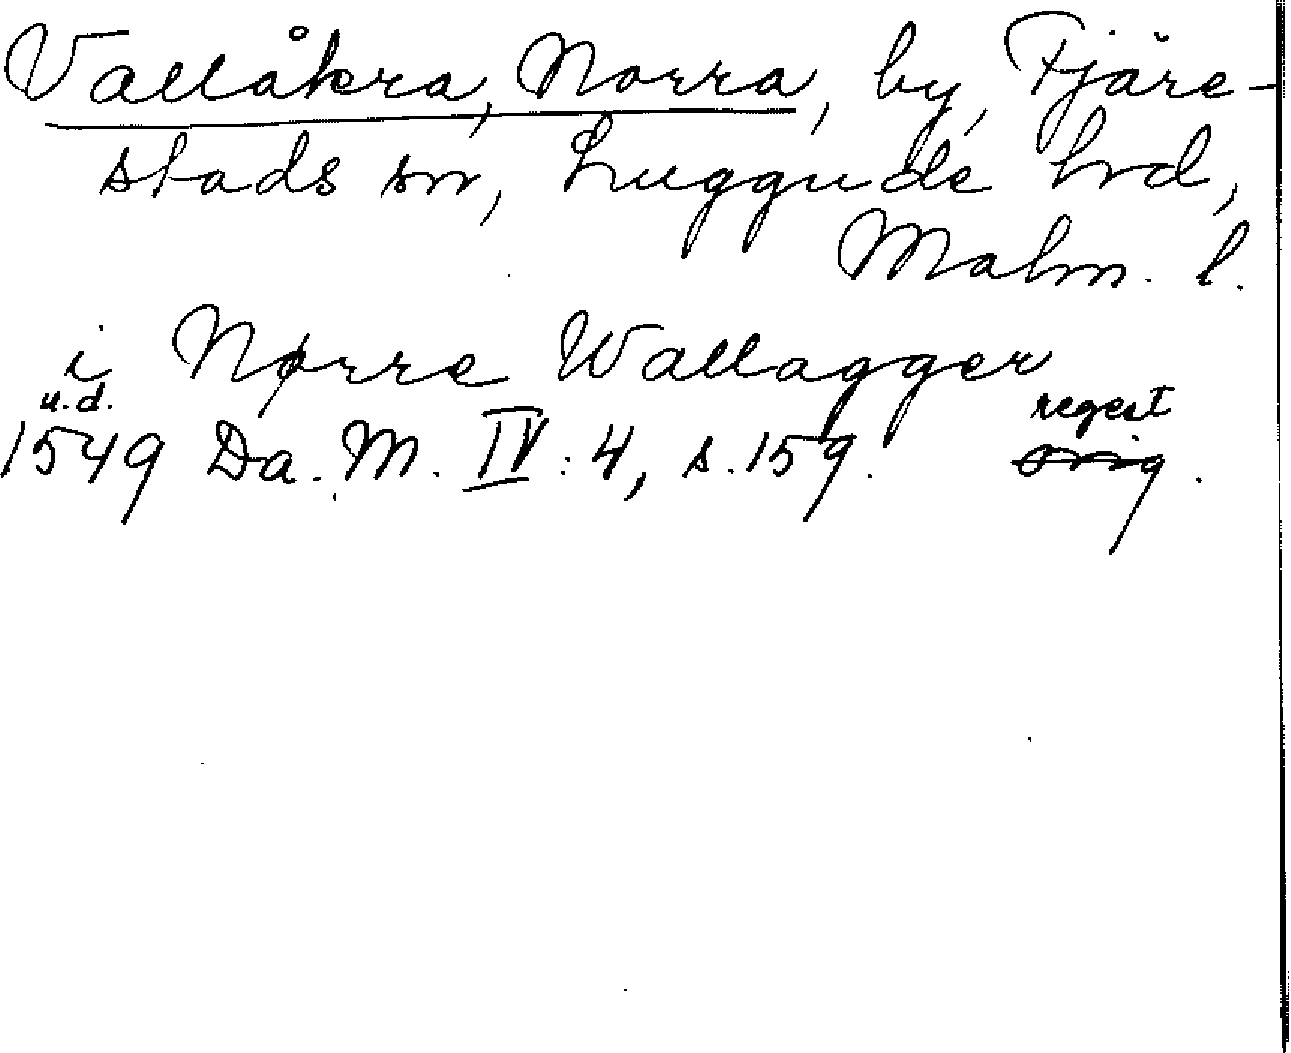 Vallåkra, Norra, by, Fjäre-
stads sn, Luggude hrd,
Malm. l.
i Nørre Wallagger
u.d. regest
1549 Da. M. IV: 4, s. 159. orig.